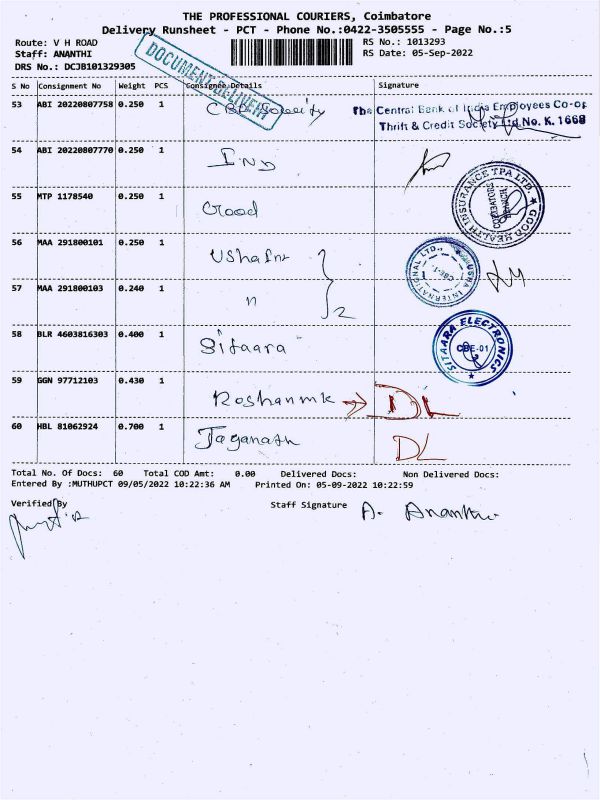 THE PROFESSIONAL COURIERS, Coimbatore
Delivery Runsheet - PCT - Phone No.:0422-3505555 - Page No.:5
Route: V H ROAD
Staff: ANANTHI
DRS No.: DCJB101329305
RS No.: 1013293
RS Date: 05-Sep-2022
DOCUMENT DELIVERY
S No Consignment No Weight PCS Consignee Details Signature
53 ABI 20220807758 0.250 1 CBE Society
The Central Bank of India Employees Co-op
Thrift & Credit Society Ltd. No. K. 1668
54 ABI 20220807770 0.250 1 IND
55 MTP 1178540 0.250 1 Good
GOOD HEALTH INSURANCE TPA LTD.
COIMBATORE BRANCH
56 MAA 291800101 0.250 1 Usha Int
USHA INTERNATIONAL LTD.,
CBE-1
57 MAA 291800103 0.240 1 " } 2
58 BLR 4603816303 0.400 1 Sitaara
SITAARA ELECTRONICS
CBE-01
59 GGN 97712103 0.430 1 Roshanmk → DL
60 HBL 81062924 0.700 1 Jaganath DL
Total No. Of Docs: 60 Total COD Amt: 0.00 Delivered Docs: Non Delivered Docs:
Entered By :MUTHUPCT 09/05/2022 10:22:36 AM Printed On: 05-09-2022 10:22:59
Verified By
Staff Signature A. Ananthi